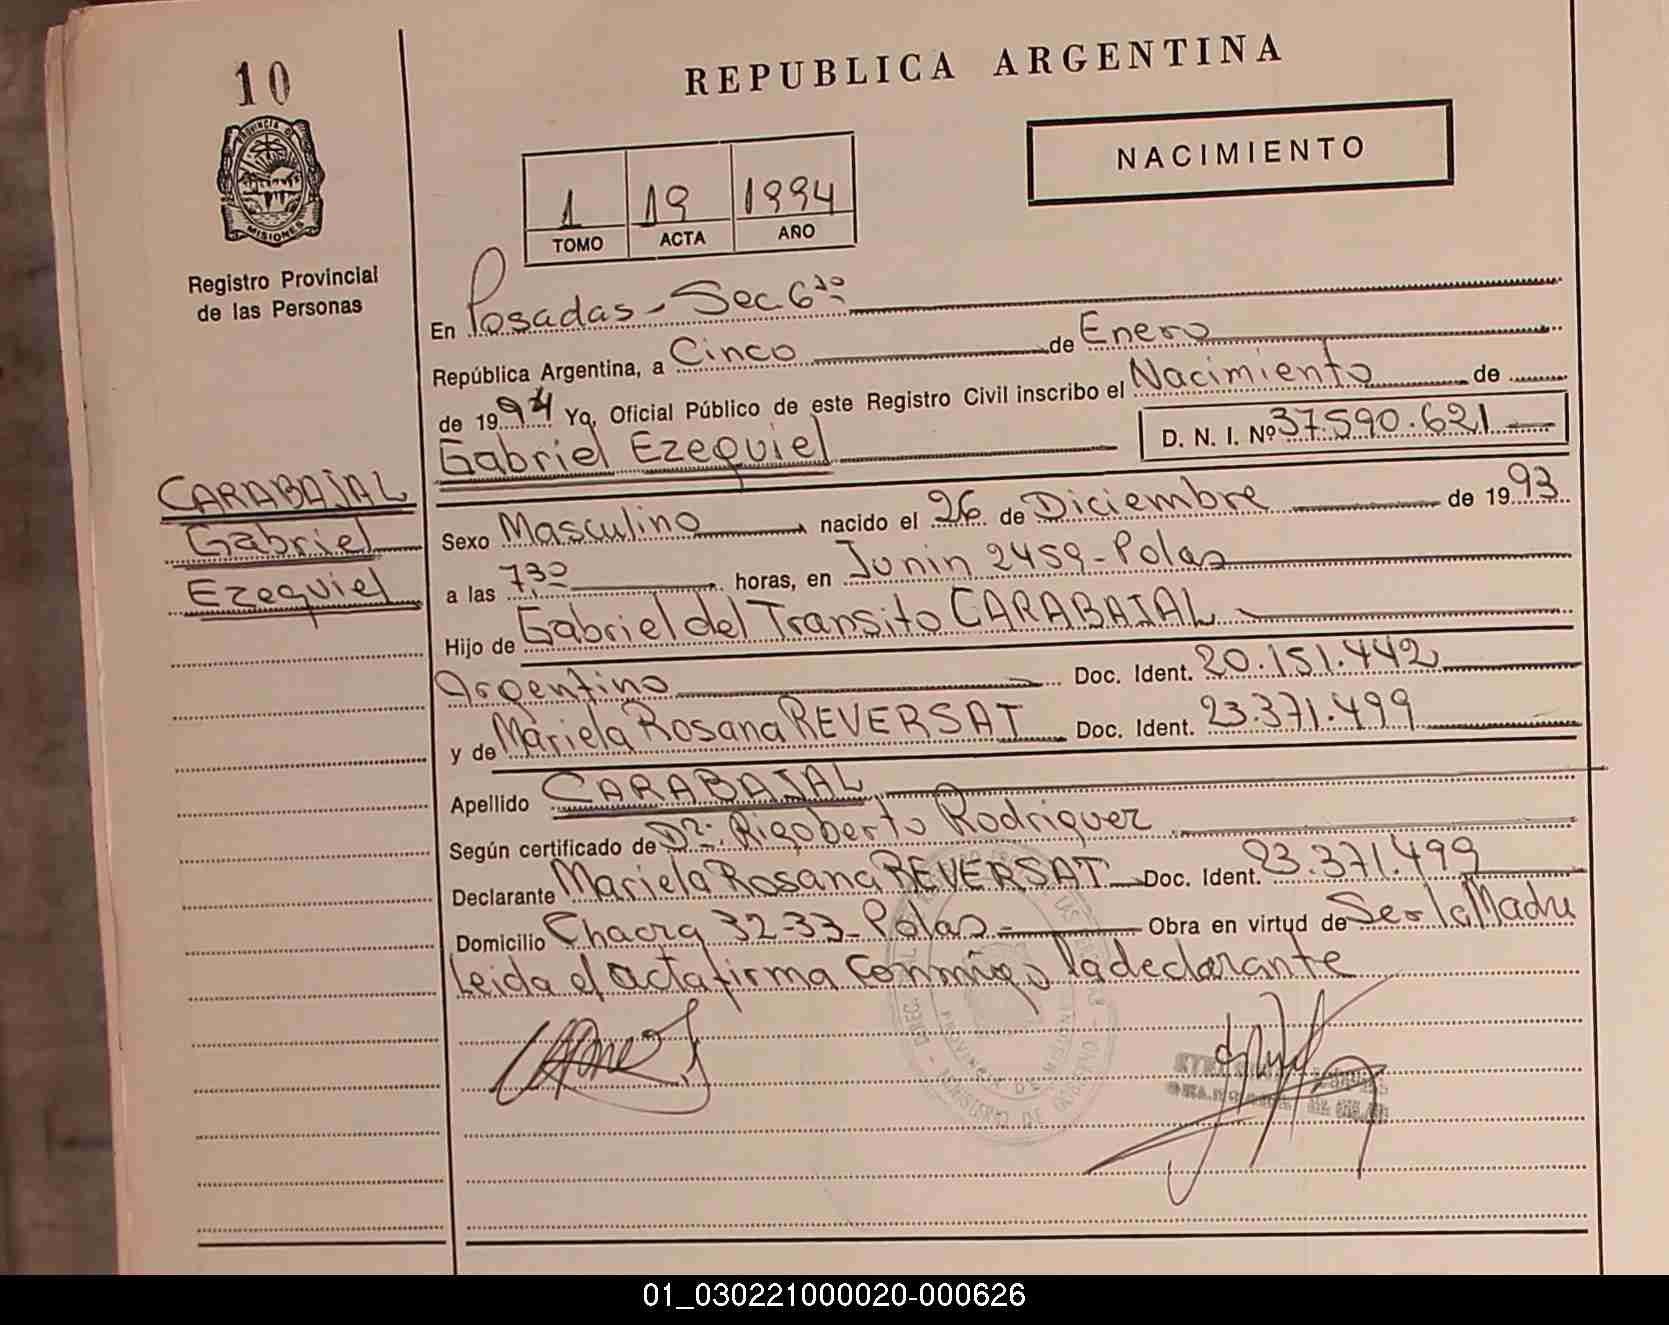 10
REPUBLICA ARGENTINA
PROVINCIA DE
MISIONES
NACIMIENTO
1 19 1994
TOMO ACTA AÑO
Registro Provincial
de las Personas
En Posadas - Sec. 6ta
República Argentina, a Cinco de Enero
de 1994 Yo, Oficial Público de este Registro Civil inscribo el Nacimiento de
Gabriel Ezequiel D. N. I. Nº 37.590.621
CARABAJAL
Gabriel
Ezequiel
Sexo Masculino nacido el 26 de Diciembre de 1993
a las 7,30 horas, en Junin 2459 - Pdas
Hijo de Gabriel del Transito CARABAJAL
Argentino Doc. Ident. 20.151.442
y de Mariela Rosana REVERSAT Doc. Ident. 23.371.499
Apellido CARABAJAL
Según certificado de Dr: Rigoberto Rodriguez
Declarante Mariela Rosana REVERSAT Doc. Ident. 23.371.499
Domicilio Chacra 32-33 - Pdas - Obra en virtud de Ser la Madre
Leida el acta firma conmigo la declarante
01_030221000020-000626